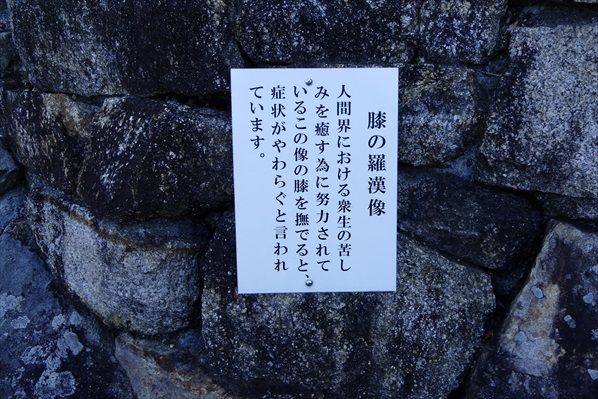 膝の羅漢像
人間界における衆生の苦し
みを癒す為に努力されて
いるこの像の膝を撫でると、
症状がやわらぐと言われ
ています。